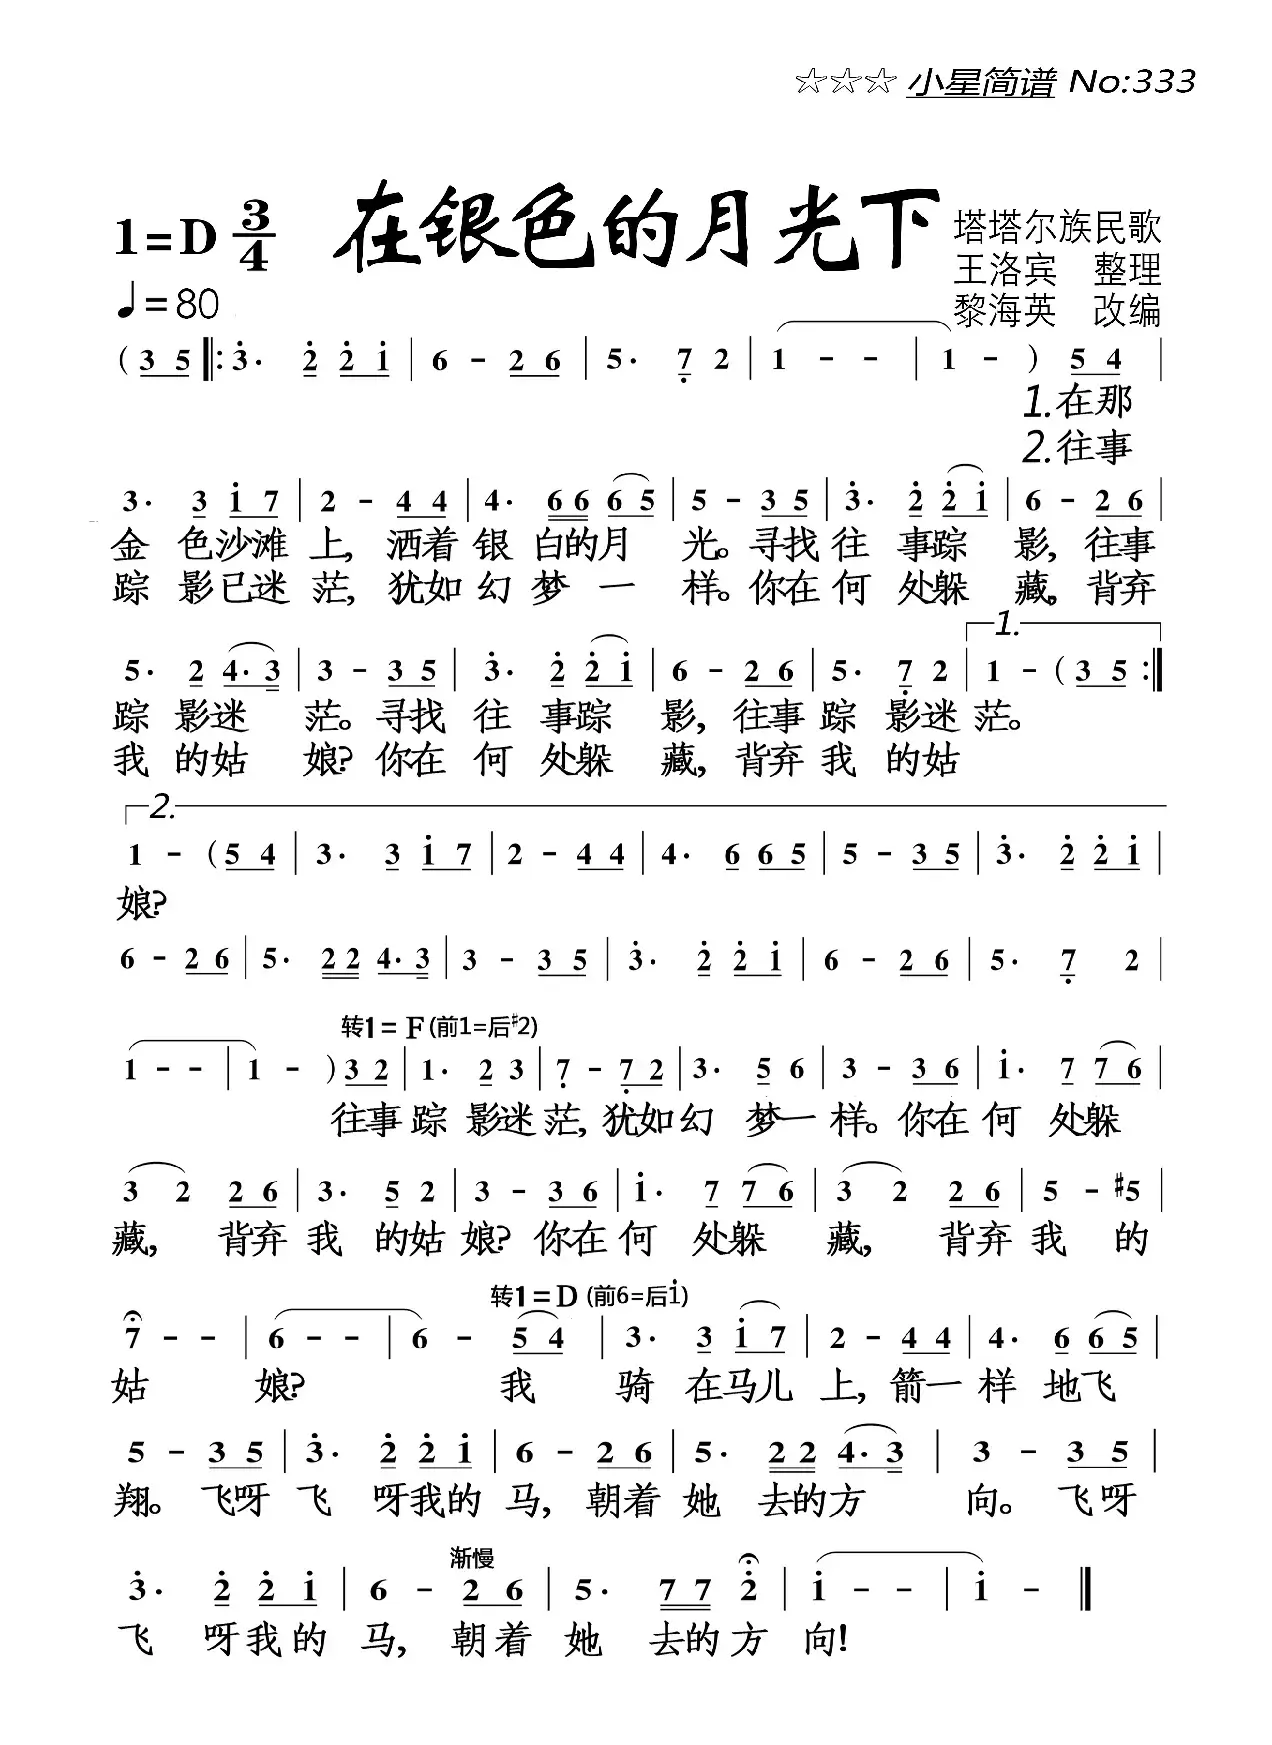 ☆☆☆ 小星简谱 No:333
1=D 3/4 在银色的月光下 塔塔尔族民歌
王洛宾 整理
♩=80 黎海英 改编
( 3 5 ‖: 3̇· 2̇ 2̇ 1̇ | 6 - 2 6 | 5· 7̣ 2 | 1 - - | 1 - ) 5 4 |
1.在那
2.往事
3· 3 1̇ 7 | 2 - 4 4 | 4· 6 6 6 5 | 5 - 3 5 | 3̇· 2̇ 2̇ 1̇ | 6 - 2 6 |
金 色沙滩 上, 洒着 银 白的月 光。寻找 往 事踪 影, 往事
踪 影已迷 茫, 犹如 幻 梦 一 样。你在 何 处躲 藏, 背弃
1.
5· 2 4· 3 | 3 - 3 5 | 3̇· 2̇ 2̇ 1̇ | 6 - 2 6 | 5· 7̣ 2 | 1 - ( 3 5 :‖
踪 影迷 茫。寻找 往 事踪 影, 往事 踪 影迷 茫。
我 的姑 娘?你在 何 处躲 藏, 背弃 我 的姑
2.
1 - ( 5 4 | 3· 3 1̇ 7 | 2 - 4 4 | 4· 6 6 5 | 5 - 3 5 | 3̇· 2̇ 2̇ 1̇ |
娘?
6 - 2 6 | 5· 2 2 4· 3 | 3 - 3 5 | 3̇· 2̇ 2̇ 1̇ | 6 - 2 6 | 5· 7̣ 2 |
转1= F (前1=后#2)
1 - - | 1 - ) 3 2 | 1· 2 3 | 7̣ - 7̣ 2 | 3· 5 6 | 3 - 3 6 | 1̇· 7 7 6 |
往事 踪 影迷 茫, 犹如 幻 梦一 样。你在 何 处躲
3 2 2 6 | 3· 5 2 | 3 - 3 6 | 1̇· 7 7 6 | 3 2 2 6 | 5 - #5 |
藏, 背弃 我 的姑 娘?你在 何 处躲 藏, 背弃 我 的
转1= D (前6=后1̇)
7 - - | 6 - - | 6 - 5 4 | 3· 3 1̇ 7 | 2 - 4 4 | 4· 6 6 5 |
姑 娘? 我 骑 在马儿 上, 箭一 样 地飞
5 - 3 5 | 3̇· 2̇ 2̇ 1̇ | 6 - 2 6 | 5· 2 2 4· 3 | 3 - 3 5 |
翔。 飞呀 飞 呀我的 马, 朝着 她 去的方 向。 飞呀
渐慢
3̇· 2̇ 2̇ 1̇ | 6 - 2 6 | 5· 7 7 2̇ | 1̇ - - | 1̇ - ‖
飞 呀我的 马, 朝着 她 去的方 向!